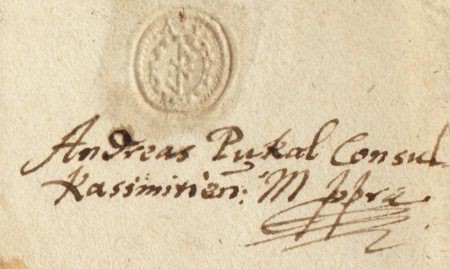 Andreas Pykal Consul
Kasimirien: M ppra